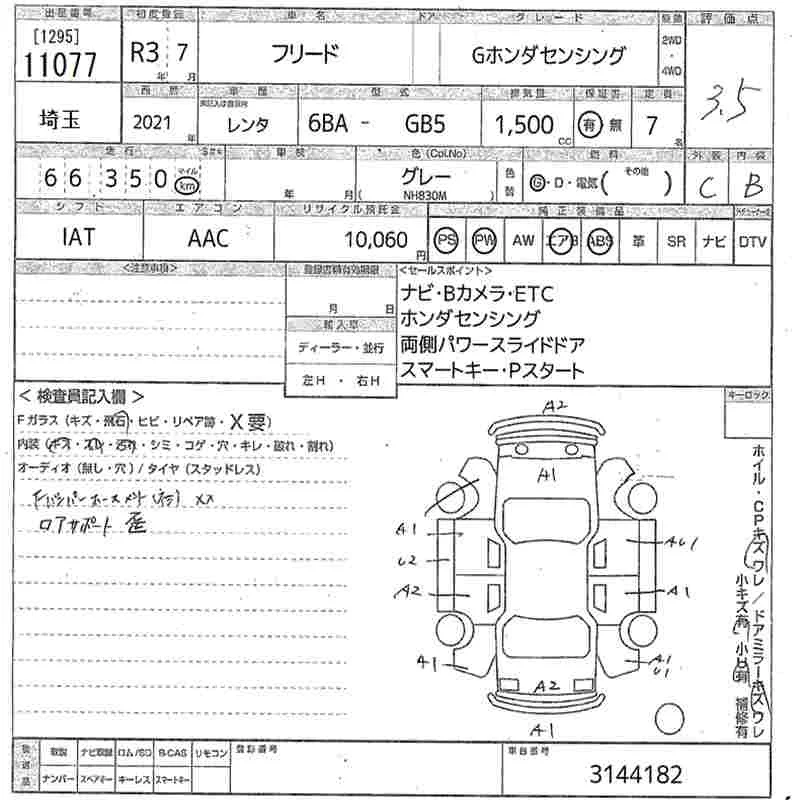 出品番号 初度登録 車名 ドア グレード 駆動 評価点
[1295]
11077 R3 年 7 月 フリード Gホンダセンシング 2WD・4WD 3.5
西暦 車歴 型式 排気量 保証書 定員
埼玉 2021 年 レンタ 6BA - GB5 1,500 CC 有 無 7 名
走行 車検 色(Col.No) 燃料 外装 内装
66350 マイル km 年 月 グレー 色替 G・D・電気 (その他 ) C B
( NH830M )
シフト エアコン リサイクル預託金 純正装備品
IAT AAC 10,060 円 PS PW AW エアB ABS 革 SR ナビ DTV
<注意事項> 登録書類有効期限 <セールスポイント>
月 日 ナビ・Bカメラ・ETC
輸入車 ホンダセンシング
ディーラー・並行 両側パワースライドドア
左H・右H スマートキー・Pスタート
<検査員記入欄> キーロック
Fガラス(キズ・飛石・ヒビ・リペア跡・X要)
内装(キズ・スレ・汚れ・シミ・コゲ・穴・キレ・破れ・割れ)
オーディオ(無し・穴)/タイヤ(スタッドレス)
ロアサポート 歪
A2
A1
A1 AU1
U2
A2 A1
A1 A1
U1
A2
A1
ホイル・CPキズワレ/ドアミラーキズワレ
小キズ有 小凹有 補修有
後送品 取説 ナビ取説 ロム/SD B-CAS リモコン 登録番号 車台番号
ナンバー スペアキー キーレス スマートキー 3144182